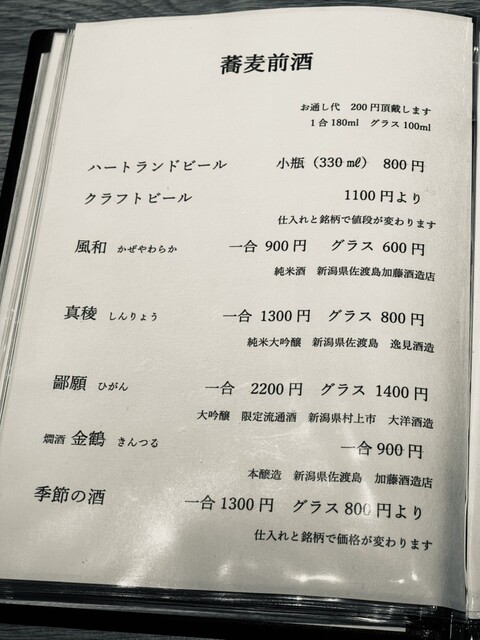 蕎麦前酒
お通し代 200円頂戴します
1合180ml グラス100ml
ハートランドビール 小瓶（330㎖） 800円
クラフトビール 1100円より
仕入れと銘柄で値段が変わります
風和 かぜやわらか 一合 900円 グラス 600円
純米酒 新潟県佐渡島加藤酒造店
真稜 しんりょう 一合 1300円 グラス 800円
純米大吟醸 新潟県佐渡島 逸見酒造
鄙願 ひがん 一合 2200円 グラス 1400円
大吟醸 限定流通酒 新潟県村上市 大洋酒造
燗酒 金鶴 きんつる 一合 900円
本醸造 新潟県佐渡島 加藤酒造店
季節の酒 一合 1300円 グラス 800円より
仕入れと銘柄で価格が変わります